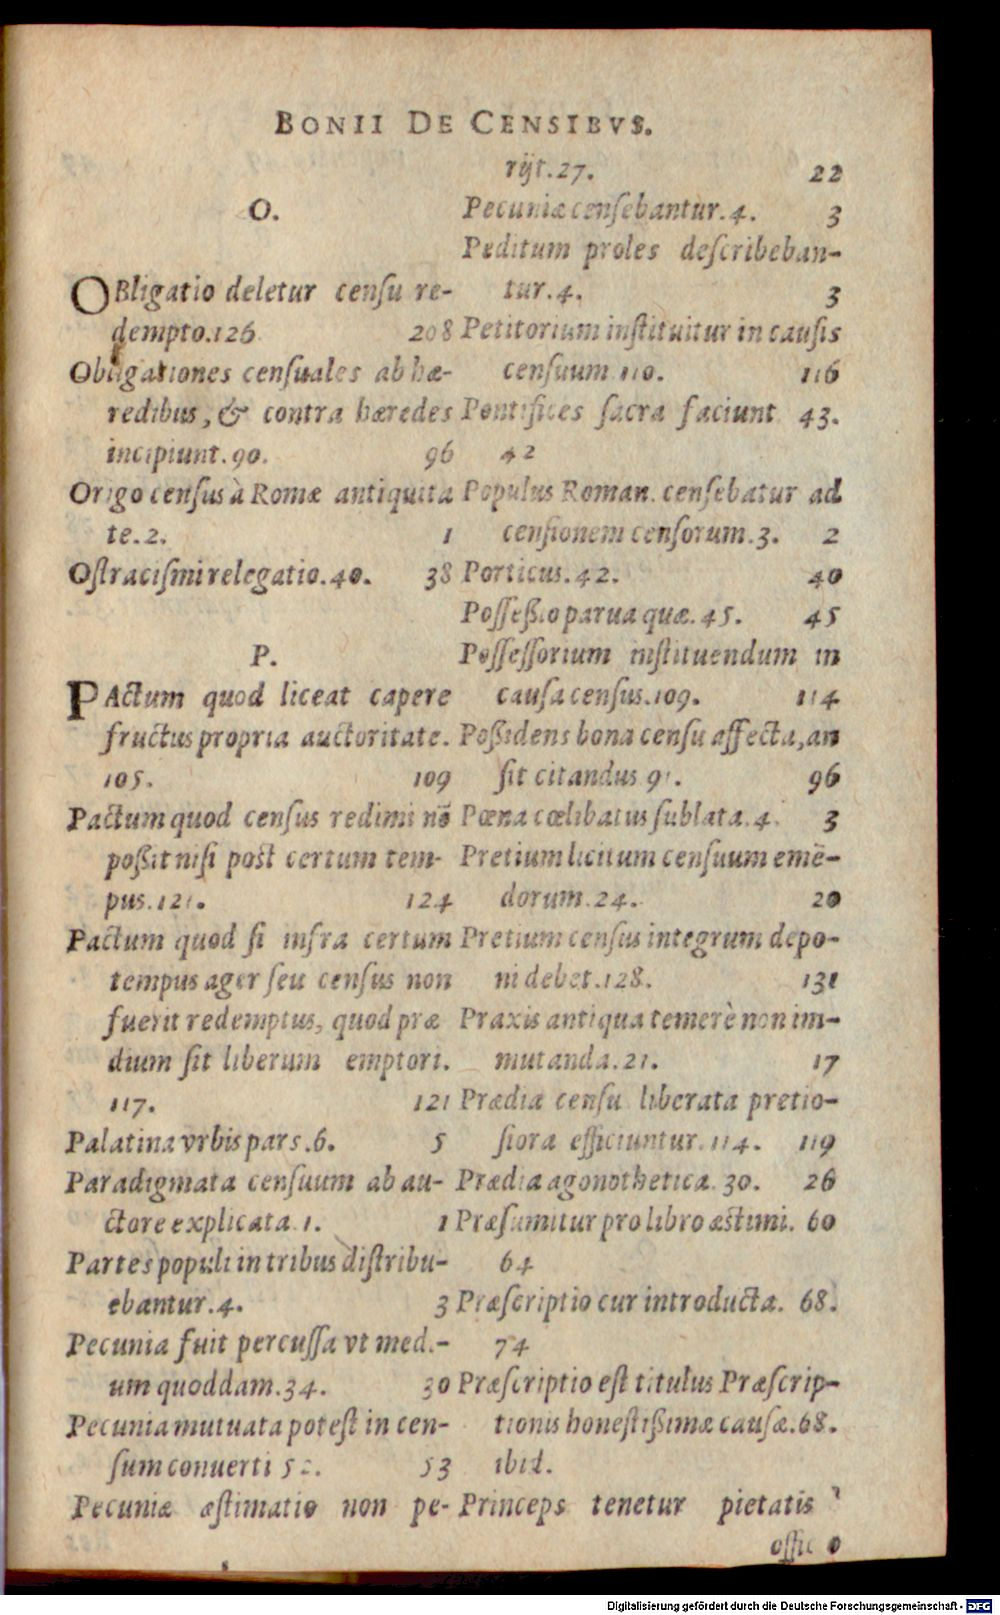 BONII DE CENSIBVS.
O.
OBligatio deletur censu re-
dempto.126 208
Obligationes censuales ab hæ-
redibus, & contra hæredes
incipiunt.90. 96
Origo census à Romæ antiquita
te.2. 1
Ostracismi relegatio.40. 38
P.
PActum quod liceat capere
fructus propria auctoritate.
105. 109
Pactum quod census redimi nõ
poßit nisi post certum tem-
pus.121. 124
Pactum quod si infra certum
tempus ager seu census non
fuerit redemptus, quod præ
dium sit liberum emptori.
117. 121
Palatina vrbis pars.6. 5
Paradigmata censuum ab au-
ctore explicata.1. 1
Partes populi in tribus distribu-
ebantur.4. 3
Pecunia fuit percussa vt med.-
um quoddam.34. 30
Pecunia mutuata potest in cen-
sum conuerti 53
Pecuniæ æstimatio non pe-
rijt.27. 22
Pecuniæ censebantur.4. 3
Peditum proles describeban-
tur.4. 3
Petitorium instituitur in causis
censuum.110. 116
Pontifices sacra faciunt 43.
42
Populus Roman. censebatur ad
censionem censorum.3. 2
Porticus.42. 40
Posseßio parua quæ.45. 45
Possessorium instituendum in
causa census.109. 114
Poßidens bona censu affecta, an
sit citandus 91. 96
Pœna cœlibatus sublata.4. 3
Pretium licitum censuum emẽ-
dorum.24. 20
Pretium census integrum depo-
ni debet.128. 131
Praxis antiqua temerè non im-
mutanda.21. 17
Prædia censu liberata pretio-
siora efficiuntur.114. 119
Prædia agonothetica.30. 26
Præsumitur pro libro æstimi. 60
64
Præscriptio cur introducta. 68.
74
Præscriptio est titulus Præscrip-
tionis honestißimæ causæ.68.
ibid.
Princeps tenetur pietatis
Digitalisierung gefördert durch die Deutsche Forschungsgemeinschaft - DFG